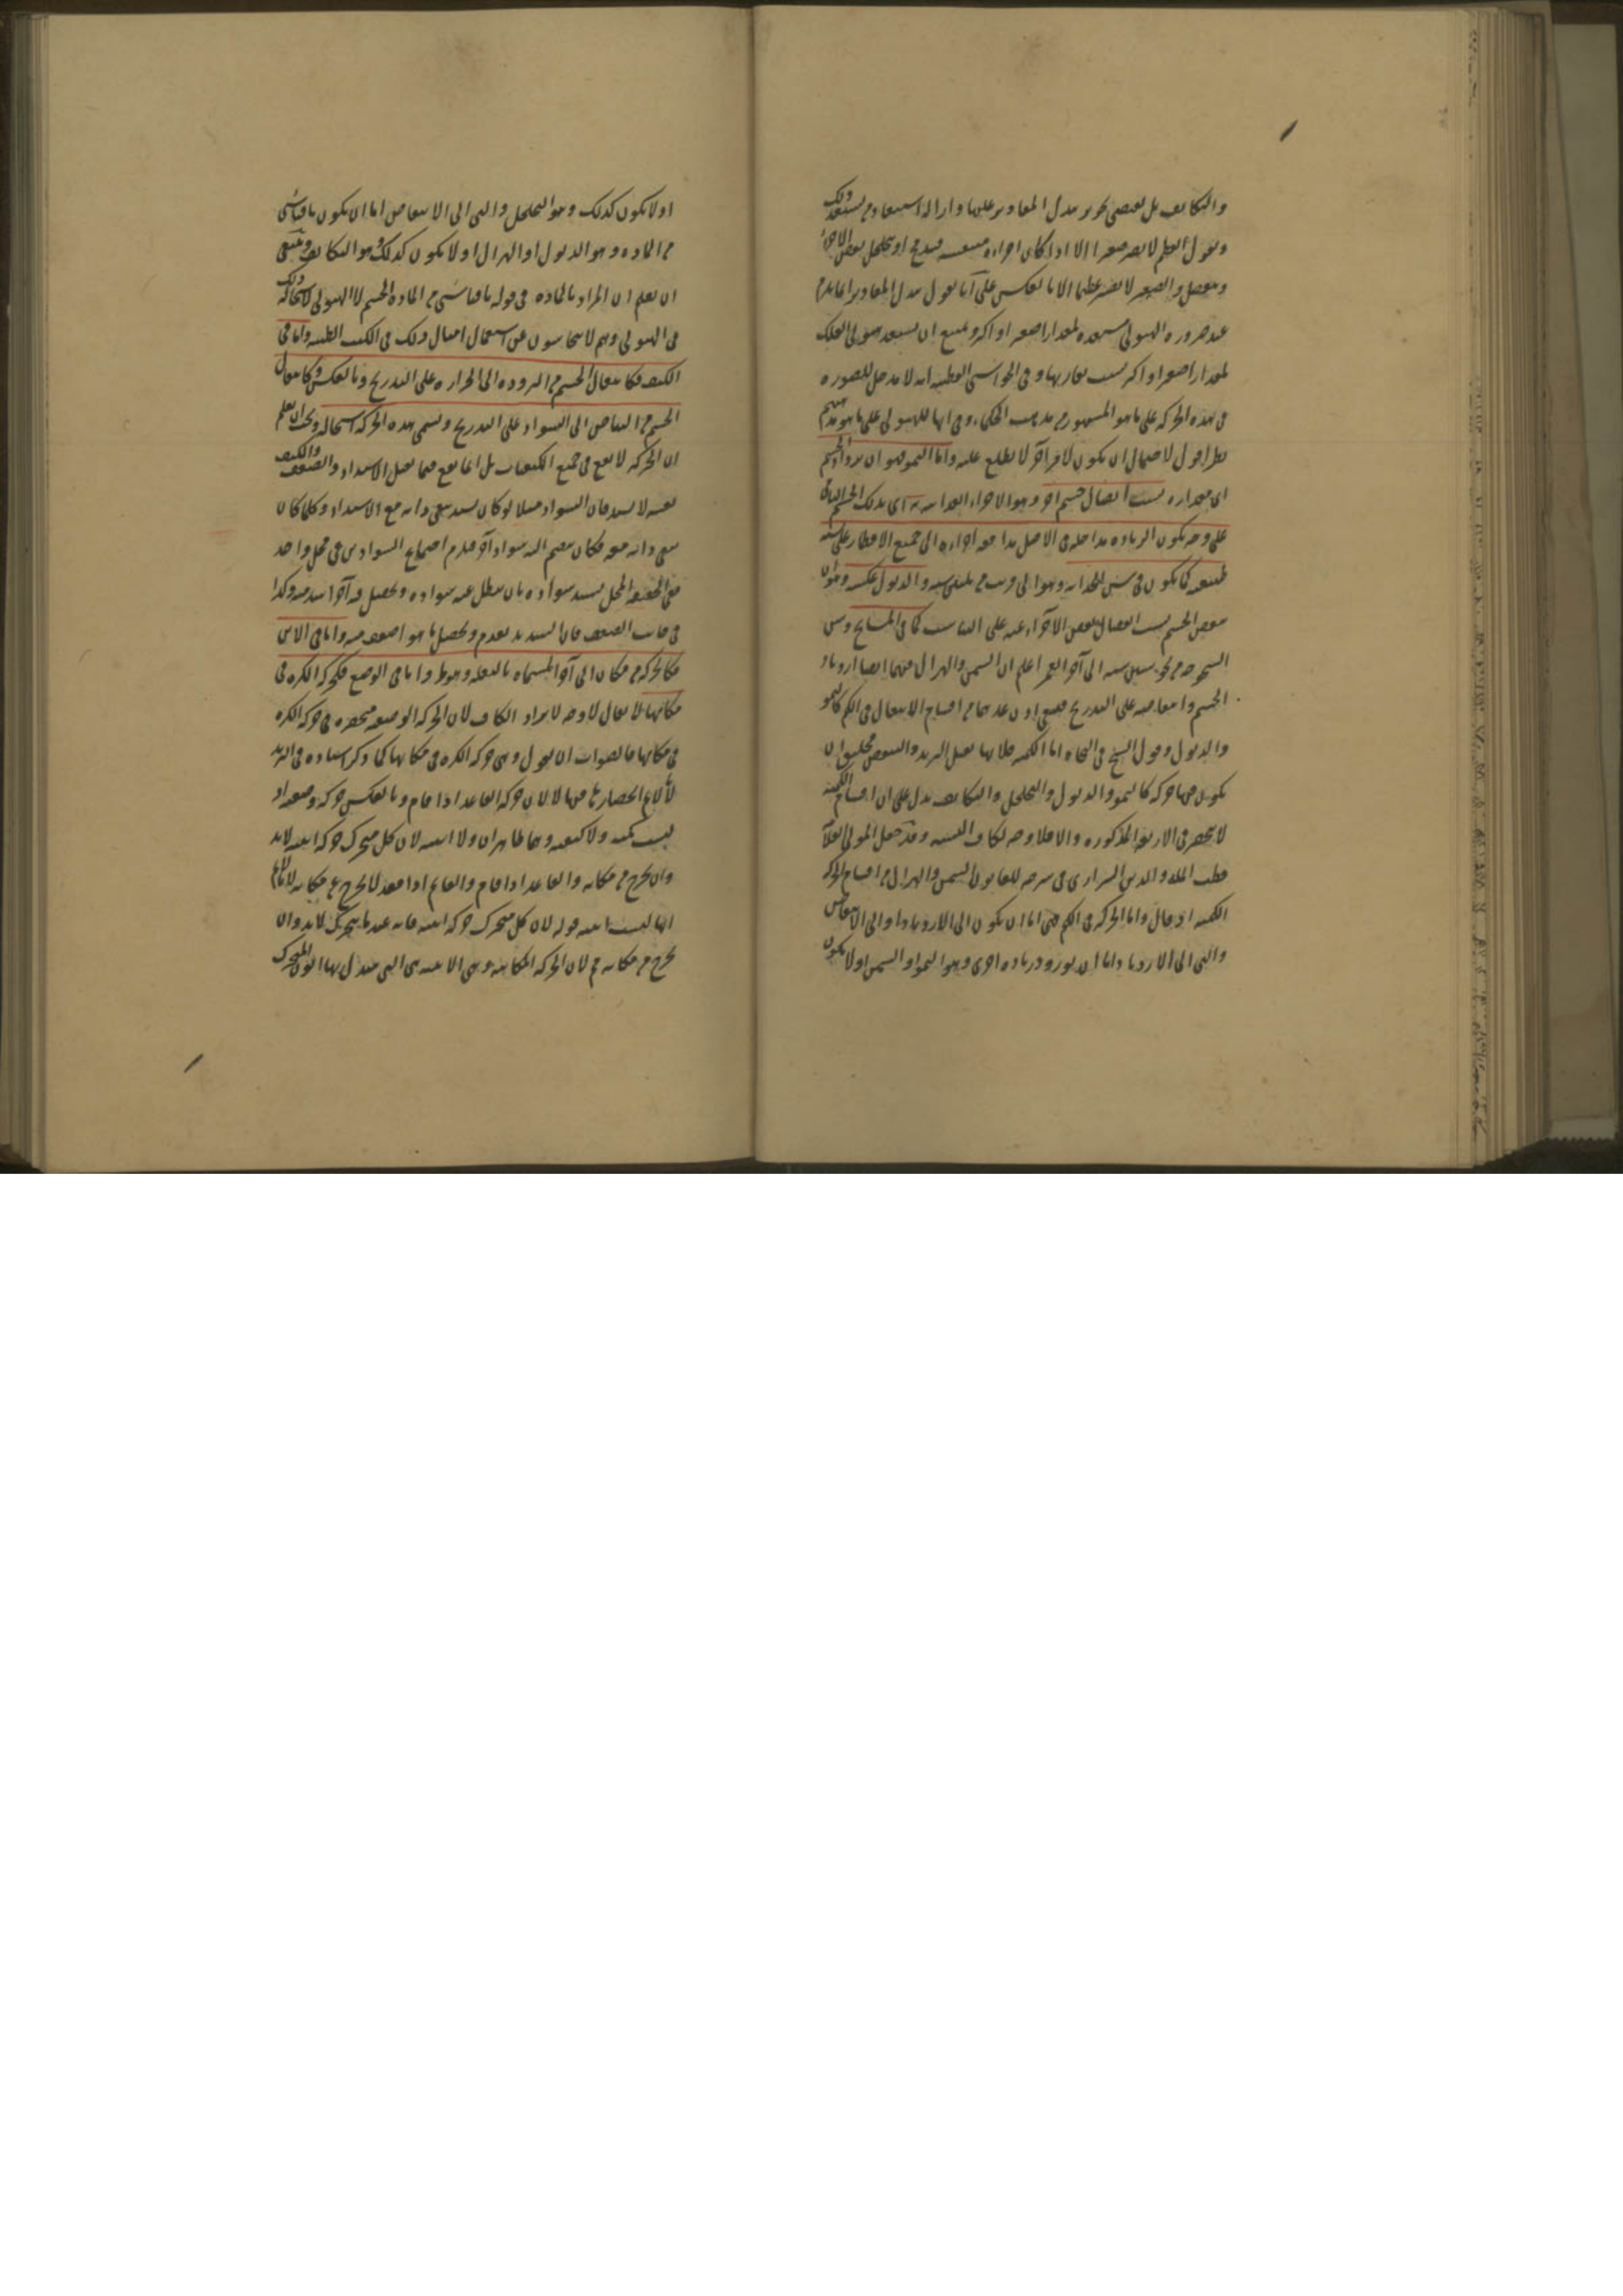 والتكاثف بل يقتضى تجويز تبدل المقادير عليها وازالة استبعاد من يستبعد ذلك
ويقول العظيم لا يصير صغيرا الا اذا كان اجزاءه منتفشة فيندمج او يتحلل بعض الاجزاء
وينفصل والصغير لا يصير عظيما الا بالعكس على انا نقول تبدل المقادير انما يلزم
عند صيرورة الهيولى مستعدة لمقدار اصغر او اكبر ويمتنع ان يستعد هيولى الفلك
لمقدار اصغر او اكبر بسبب يقارنها وفى الحواشى القطبية انه لا مدخل للصورة
فى هذه الحركة على ما هو المشهور من مذهب الحكماء وفى انها للهيولى على ما هو مذهبهم
نظر اقول لاحتمال ان يكون لامر آخر لا نطلع عليه واما النمو فهو ان يزداد الجسم
اى مقداره بسبب اتصال جسم آخر وهو الاجزاء الغذائية به اى بذلك الجسم النامى
على وجه يكون الزيادة مداخلة فى الاصل مدافعة اجزاءه الى جميع الاقطار على نسبة
طبيعية كما يكون فى سن الحداثة وهو الى قريب من ثلثين سنة والذبول عكسه وهو ان
ينقص الجسم بسبب انفصال بعض الاجزاء عنه على التناسب كما فى المشايخ وسن
الشيخوخة من نحو ستين سنة الى آخر العمر اعلم ان السمن والهزال فيهما ايضا ازدياد
الجسم وانتقاصه على التدريج فينبغى اذن عدهما من اقسام الانتقال فى الكم كالنمو
والذبول وقول الشيخ فى النجاة اما الكمية فلانها تقبل التزيد والتنقص فخليق ان
يكون فيها حركة كالنمو والذبول والتخلخل والتكاثف يدل على ان اقسام الكمية
لا تنحصر فى الاربعة المذكورة والا فلا وجه لكاف التشبيه وقد جعل المولى العلامة
قطب الملة والدين الشيرازى فى شرحه للقانون السمن والهزال من اقسام الحركة
الكمية اذ قال واما الحركة فى الكم فهى اما ان يكون الى الازدياد او الى الانتقاص
والتى الى الازدياد اما ان يكون بورود زيادة اخرى وهو النمو او السمن او لا يكون
او لا يكون كذلك وهو التخلخل والتى الى الانتقاص اما ان يكون بانفصال شىء
من المادة وهو الذبول او الهزال او لا يكون كذلك وهو التكاثف وينبغى
ان يعلم ان المراد بالمادة فى قوله بانفصال شىء من المادة الجسم لا الهيولى لاستحالة ذلك
فى الهيولى وهم لا يتحاشون عن استعمال امثال ذلك فى الكتب الطبية واما فى
الكيف فكانتقال الجسم من البرودة الى الحرارة على التدريج وبالعكس وكانتقال
الجسم من البياض الى السواد على التدريج ويسمى هذه الحركة استحالة ويجب ان يعلم
ان الحركة لا تقع فى جميع الكيفيات بل انما تقع فيما يقبل الاشتداد والضعف والكيف
نفسه لا يشتد فان السواد مثلا لو كان يشتد يبقى ذاته مع الاشتداد وكلما كان
يبقى ذاته معه فكان ينضم اليه سواد آخر فيلزم اجتماع السوادين فى محل واحد
ففى الحقيقة المحل يشتد سواده بان يبطل عنه سواده ويحصل فيه آخر اشد منه وكذا
فى جانب الضعف فان الشديد يعدم ويحصل ما هو اضعف منه واما فى الاين
فكالحركة من مكان الى آخر المسماة بالنقلة وهو ظ واما فى الوضع فكحركة الكرة فى
مكانها لا يقال لا وجه لايراد الكاف لان الحركة الوضعية منحصرة فى حركة الكرة
فى مكانها فالصواب ان يقول وهى حركة الكرة فى مكانها كما ذكر استاده فى الزبدة
لانا نمنع انحصارها فيها لان حركة القاعد اذا قام وبالعكس حركة وضعية اذ
ليست كمية ولا كيفية وهما ظاهران ولا اينية لان كل متحرك حركة اينية لابد
وان يخرج من مكانه والقاعد اذا قام والقائم اذا قعد لا يخرج عن مكانه لانا نمنع
انها ليست اينية قوله لان كل متحرك حركة اينية فانه عندما يتحرك لابد وان
يخرج من مكانه مم لان الحركة المكانية وهى الاينية هى التى يتبدل بها ايون المتحرك